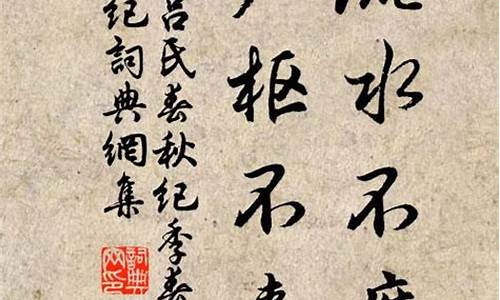 流水不
枢不
吕氏春秋纪季春
纪詞典網集
詞典
网印